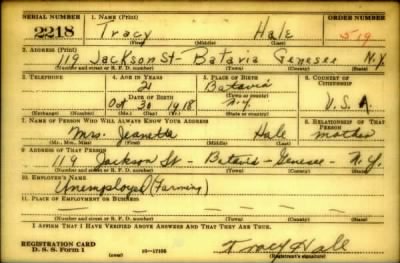 SERIAL NUMBER 1. NAME (Print) ORDER NUMBER
2218 Tracy Hale 519
(First) (Middle) (Last)
2. ADDRESS (Print)
119 Jackson St - Batavia Genesee N.Y.
(Number and street or R. F. D. number) (Town) (County) (State)
3. TELEPHONE 4. AGE IN YEARS 5. PLACE OF BIRTH 6. COUNTRY OF CITIZENSHIP
21 Batavia
DATE OF BIRTH (Town or county)
Oct 30 1918 N.Y. U.S.A
(Exchange) (Number) (Mo.) (Day) (Yr.) (State or country)
7. NAME OF PERSON WHO WILL ALWAYS KNOW YOUR ADDRESS 8. RELATIONSHIP OF THAT PERSON
Mrs. Jeanette Hale mother
(Mr., Mrs., Miss) (First) (Middle) (Last)
9. ADDRESS OF THAT PERSON
119 Jackson St - Batavia - Genesee - N.Y.
(Number and street or R. F. D. number) (Town) (County) (State)
10. EMPLOYER'S NAME
Unemployed (Farming)
11. PLACE OF EMPLOYMENT OR BUSINESS
(Number and street or R. F. D. number) (Town) (County) (State)
I AFFIRM THAT I HAVE VERIFIED ABOVE ANSWERS AND THAT THEY ARE TRUE.
REGISTRATION CARD
D. S. S. Form 1 (over) Tracy Hale
(Registrant's signature)